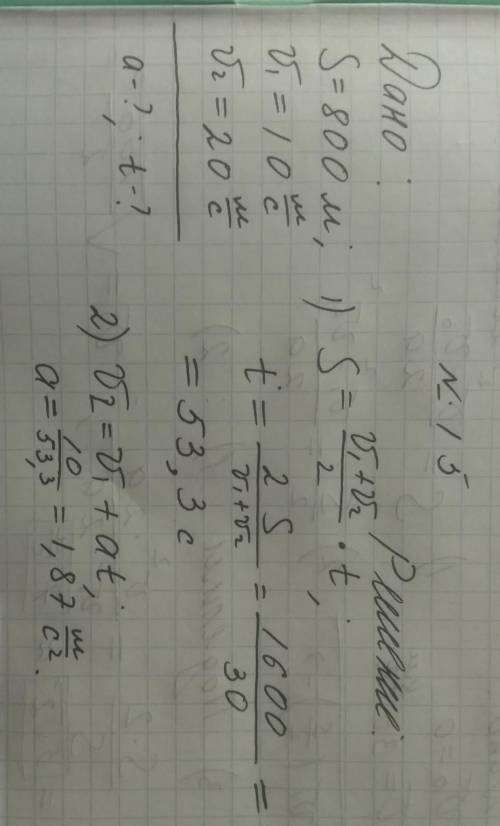 № 15
Дано:
S = 800 м;
v₁ = 10 м/с
v₂ = 20 м/с
a - ?; t - ?
Решение:
1) S = (v₁ + v₂)/2 · t,
t = 2S/(v₁ + v₂) = 1600/30 =
= 53,3 с
2) v₂ = v₁ + at,
a = 10/53,3 = 1,87 м/с².